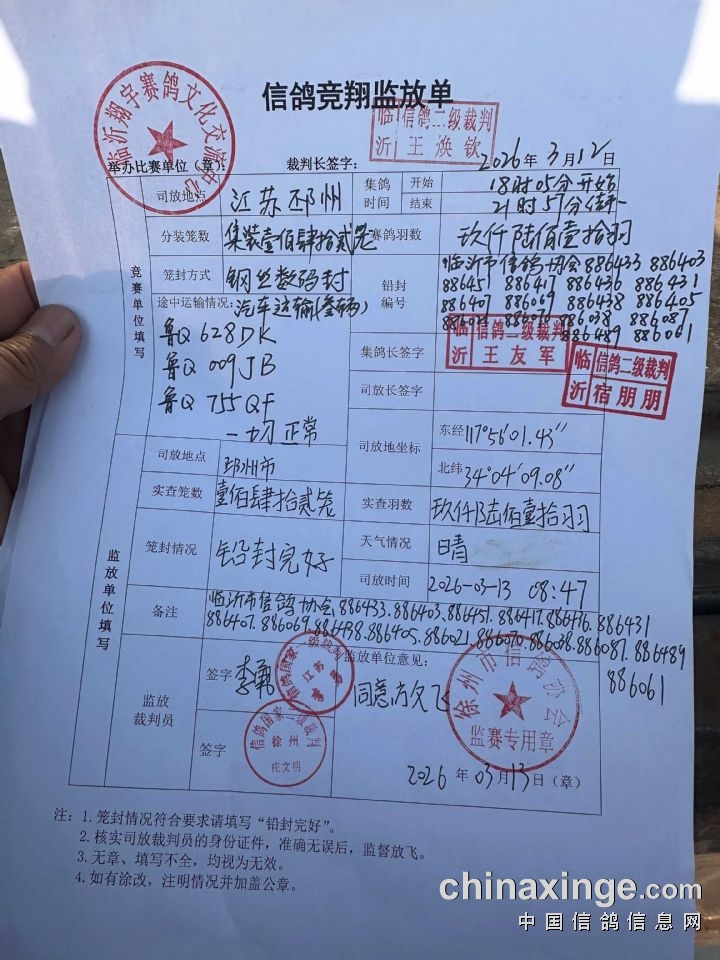 信鸽竞翔监放单
临沂翔宇赛鸽文化交流中心
临沂 信鸽二级裁判 王焕钦
举办比赛单位（章）： 裁判长签字： 2026年3月12日
竞赛单位填写
司放地点 江苏邳州 集鸽时间 开始 18时05分开始
结束 21时51分结束
分装笼数 集装壹佰肆拾贰笼 赛鸽羽数 玖仟陆佰壹拾羽
笼封方式 钢丝数码封 铅封编号 临沂市信鸽协会 886433 886403
886451 886417 886436 886431
886407 886069 886438 886405
886021 886070 886038 886087
886489 886061
途中运输情况：汽车运输(叁辆)
鲁Q 628DK
鲁Q 009JB
鲁Q 755QF
一切正常
集鸽长签字 临沂 信鸽二级裁判 王友军
临沂 信鸽二级裁判 宿朋朋
司放长签字
司放地坐标 东经 117°56′01.43″
北纬 34°04′09.08″
监放单位填写
司放地点 邳州市
实查笼数 壹佰肆拾贰笼 实查羽数 玖仟陆佰壹拾羽
笼封情况 铅封完好 天气情况 晴
司放时间 2026-03-13 08:47
备注 临沂市信鸽协会.886433.886403.886451.886417.886436.886431
886407.886069.886438.886405.886021.886070.886038.886087.886489
886061
监放裁判员 签字 李勇 监放单位意见：
信鸽国家一级裁判 江苏 李勇
同意放飞
徐州市信鸽协会 监赛专用章
签字 信鸽国家一级裁判 徐州 文明
2026年03月13日（章）
注：1. 笼封情况符合要求请填写“铅封完好”。
2. 核实司放裁判员的身份证件，准确无误后，监督放飞。
3. 无章、填写不全，均视为无效。
4. 如有涂改，注明情况并加盖公章。
chinaxinge.com
中国信鸽信息网